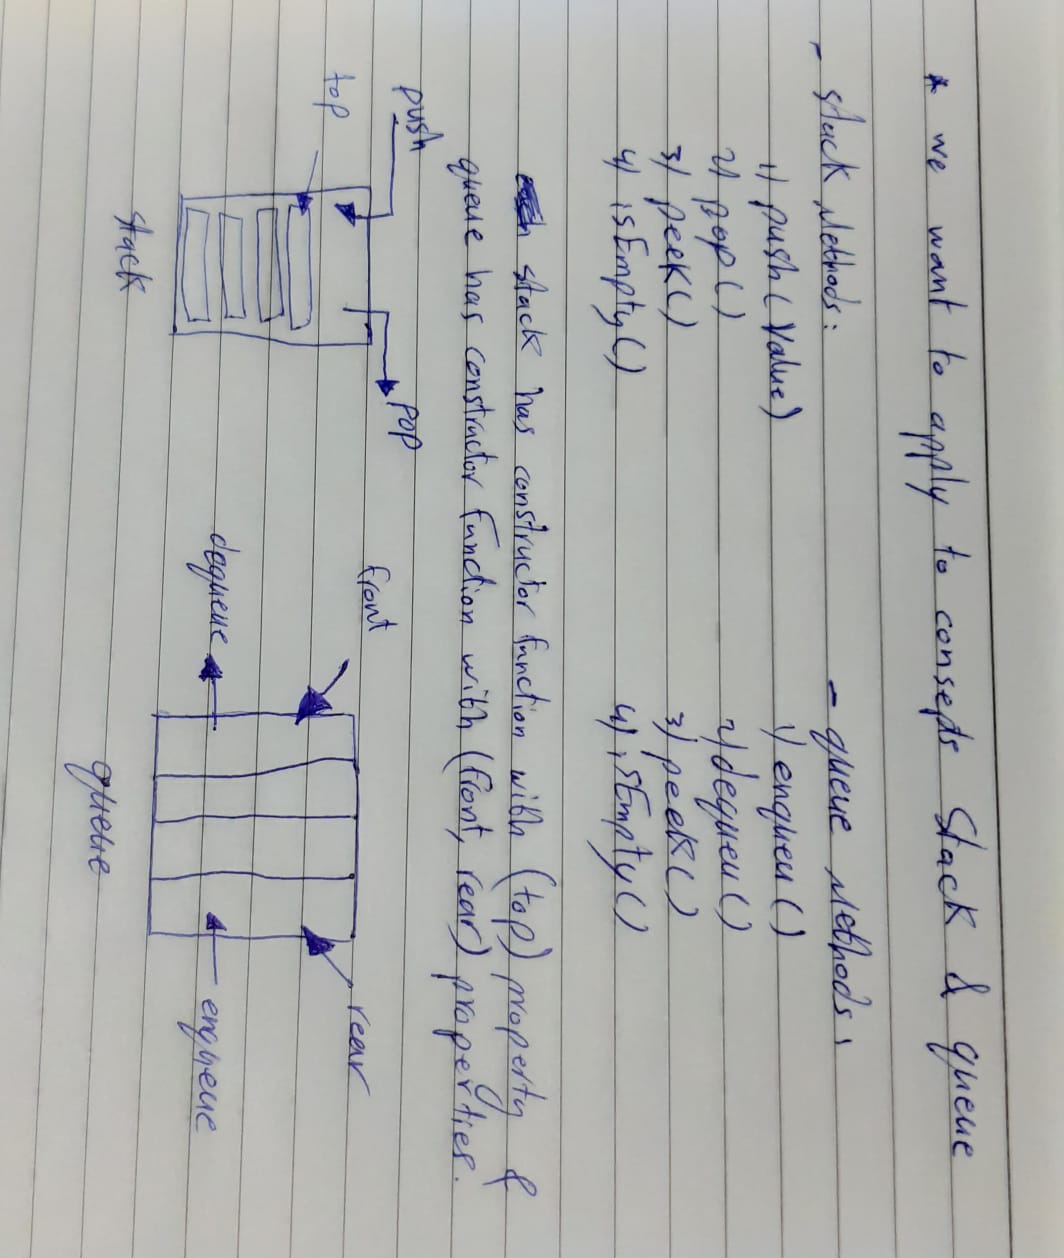 * we want to apply to consepts Stack & queue
- stack Methods:
1) push(value)
2) pop()
3) peek()
4) isEmpty()
- queue Methods:
1) enqueu()
2) dequeu()
3) peek()
4) isEmpty()
stack has constructor function with (top) property &
queue has constructor function with (front, rear) properties.
push
pop
top
stack
front
rear
dequeue
enqueue
queue